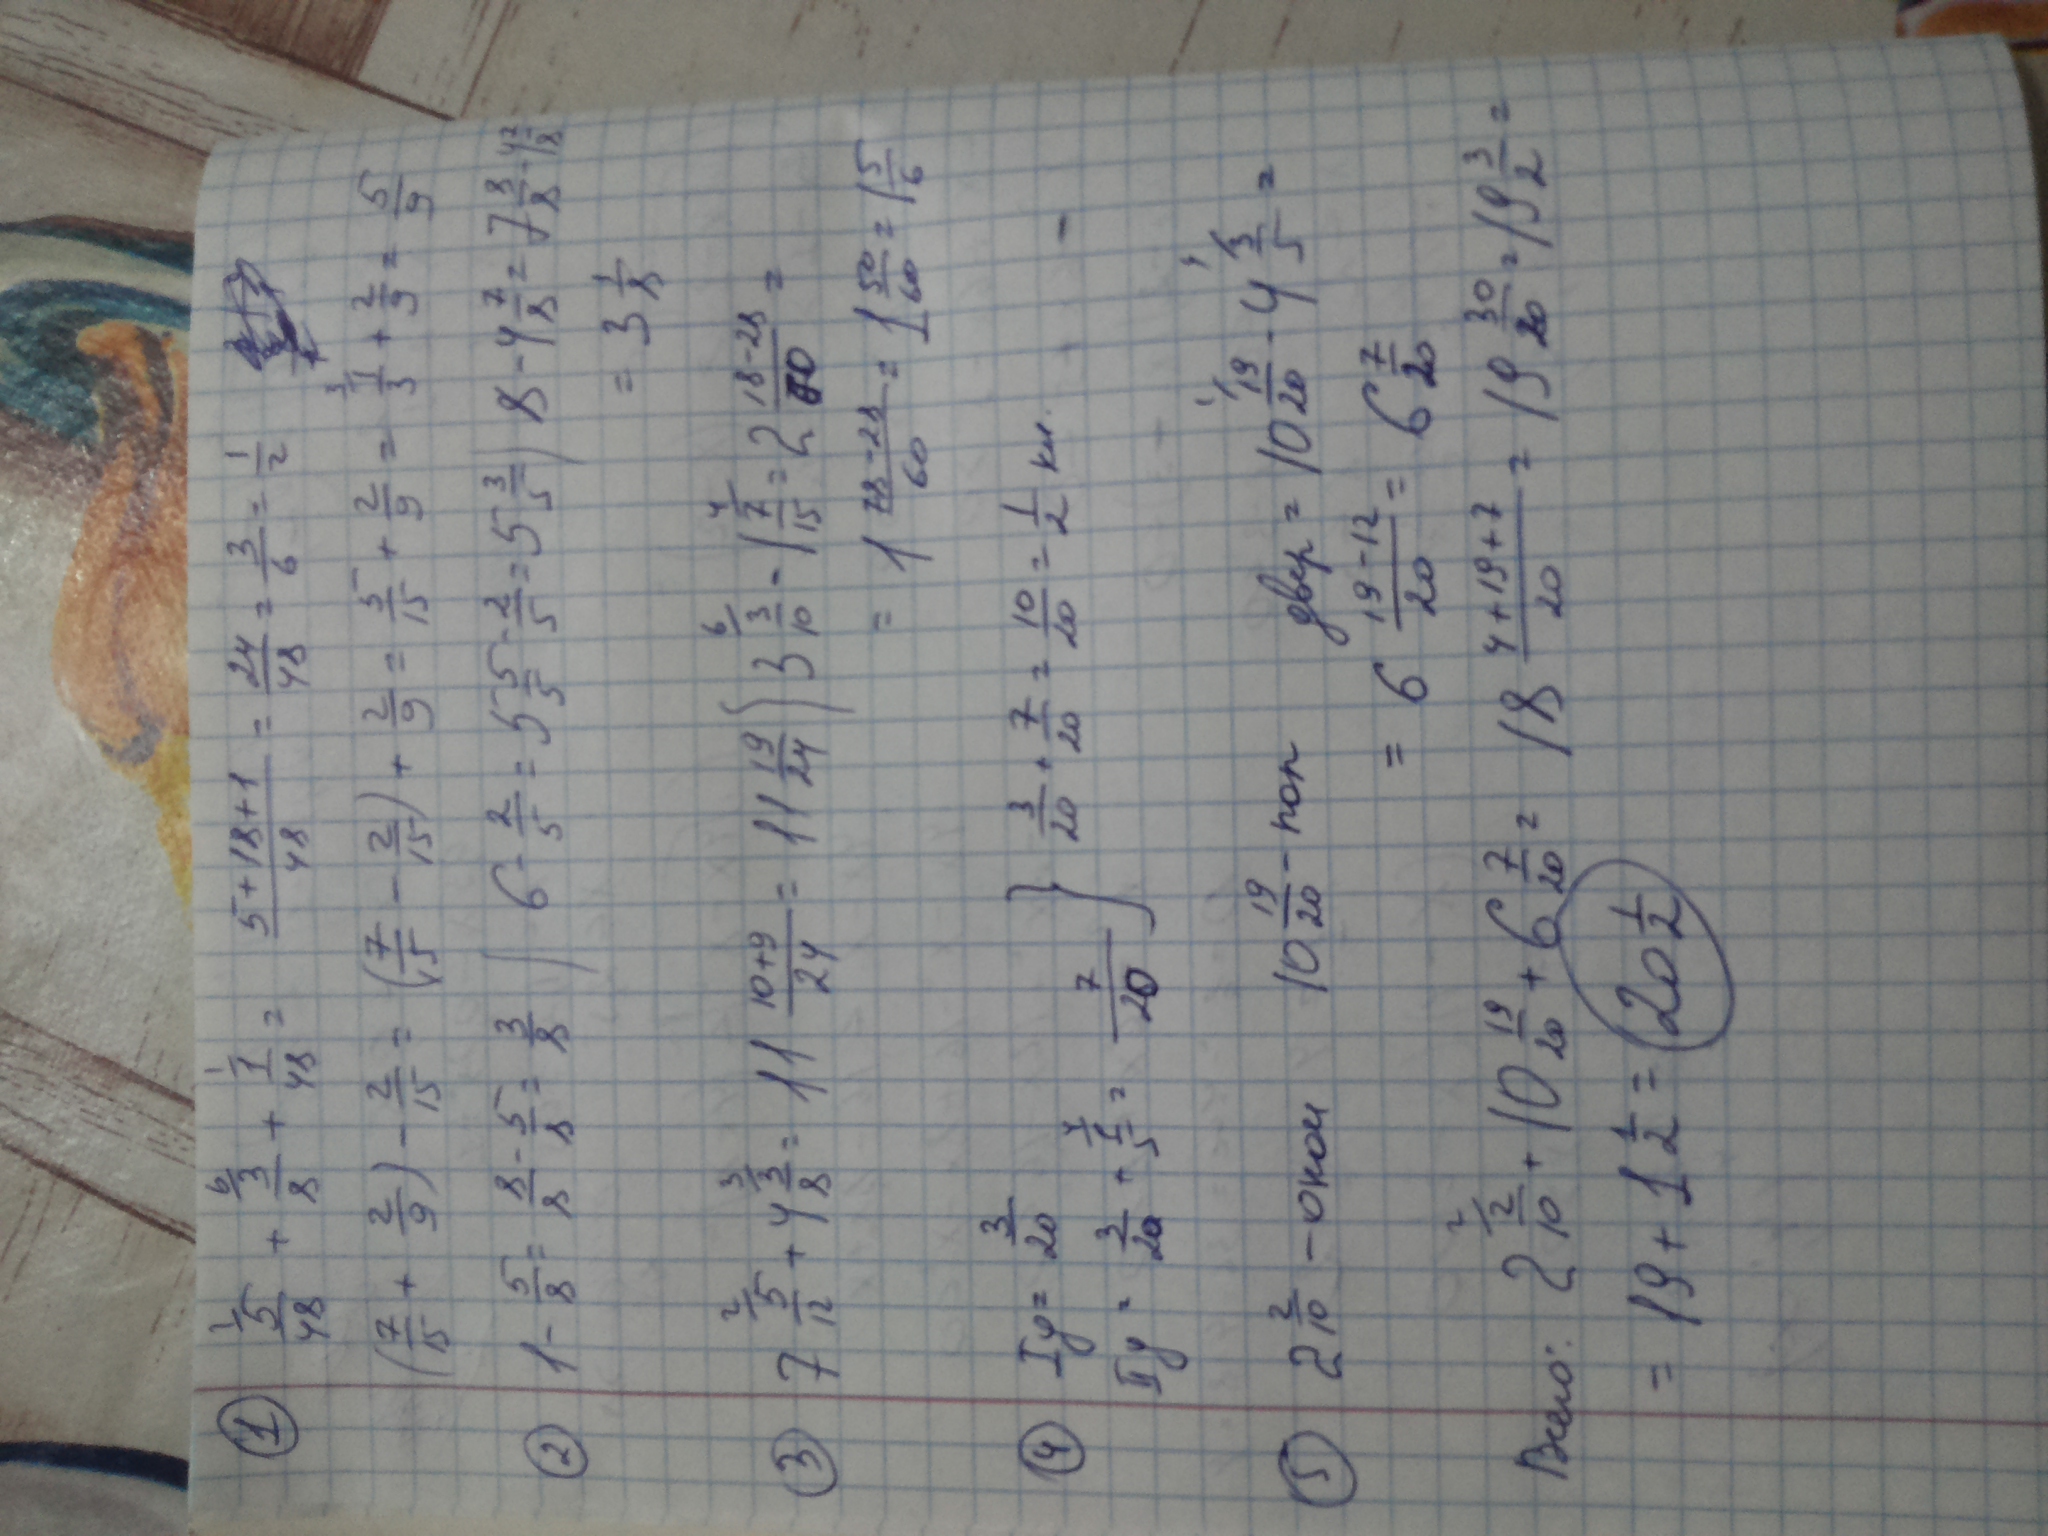 ① 5/48 + 3/8 + 1/48 = (5+18+1)/48 = 24/48 = 3/6 = 1/2
(7/15 + 2/9) - 2/15 = (7/15 - 2/15) + 2/9 = 5/15 + 2/9 = 1/3 + 2/9 = 5/9
② 1 - 5/8 = 8/8 - 5/8 = 3/8 | 6 - 2/5 = 5 5/5 - 2/5 = 5 3/5 | 8 - 4 7/8 = 7 8/8 - 4 7/8
= 3 1/8
③ 7 5/12 + 4 3/8 = 11 (10+9)/24 = 11 19/24 | 3 3/10 - 1 7/15 = 2 (18-28)/60 =
= 1 (78-28)/60 = 1 50/60 = 1 5/6
④ I у = 3/20 } 3/20 + 7/20 = 10/20 = 1/2 кл.
II у = 3/20 + 1/5 = 7/20
⑤ 2 2/10 - окон 10 19/20 - пол двер = 10 19/20 - 4 3/5 =
= 6 (19-12)/20 = 6 7/20
Всего: 2 2/10 + 10 19/20 + 6 7/20 = 18 (4+19+7)/20 = 19 30/20 = 19 3/2 =
= 19 + 1 1/2 = 20 1/2